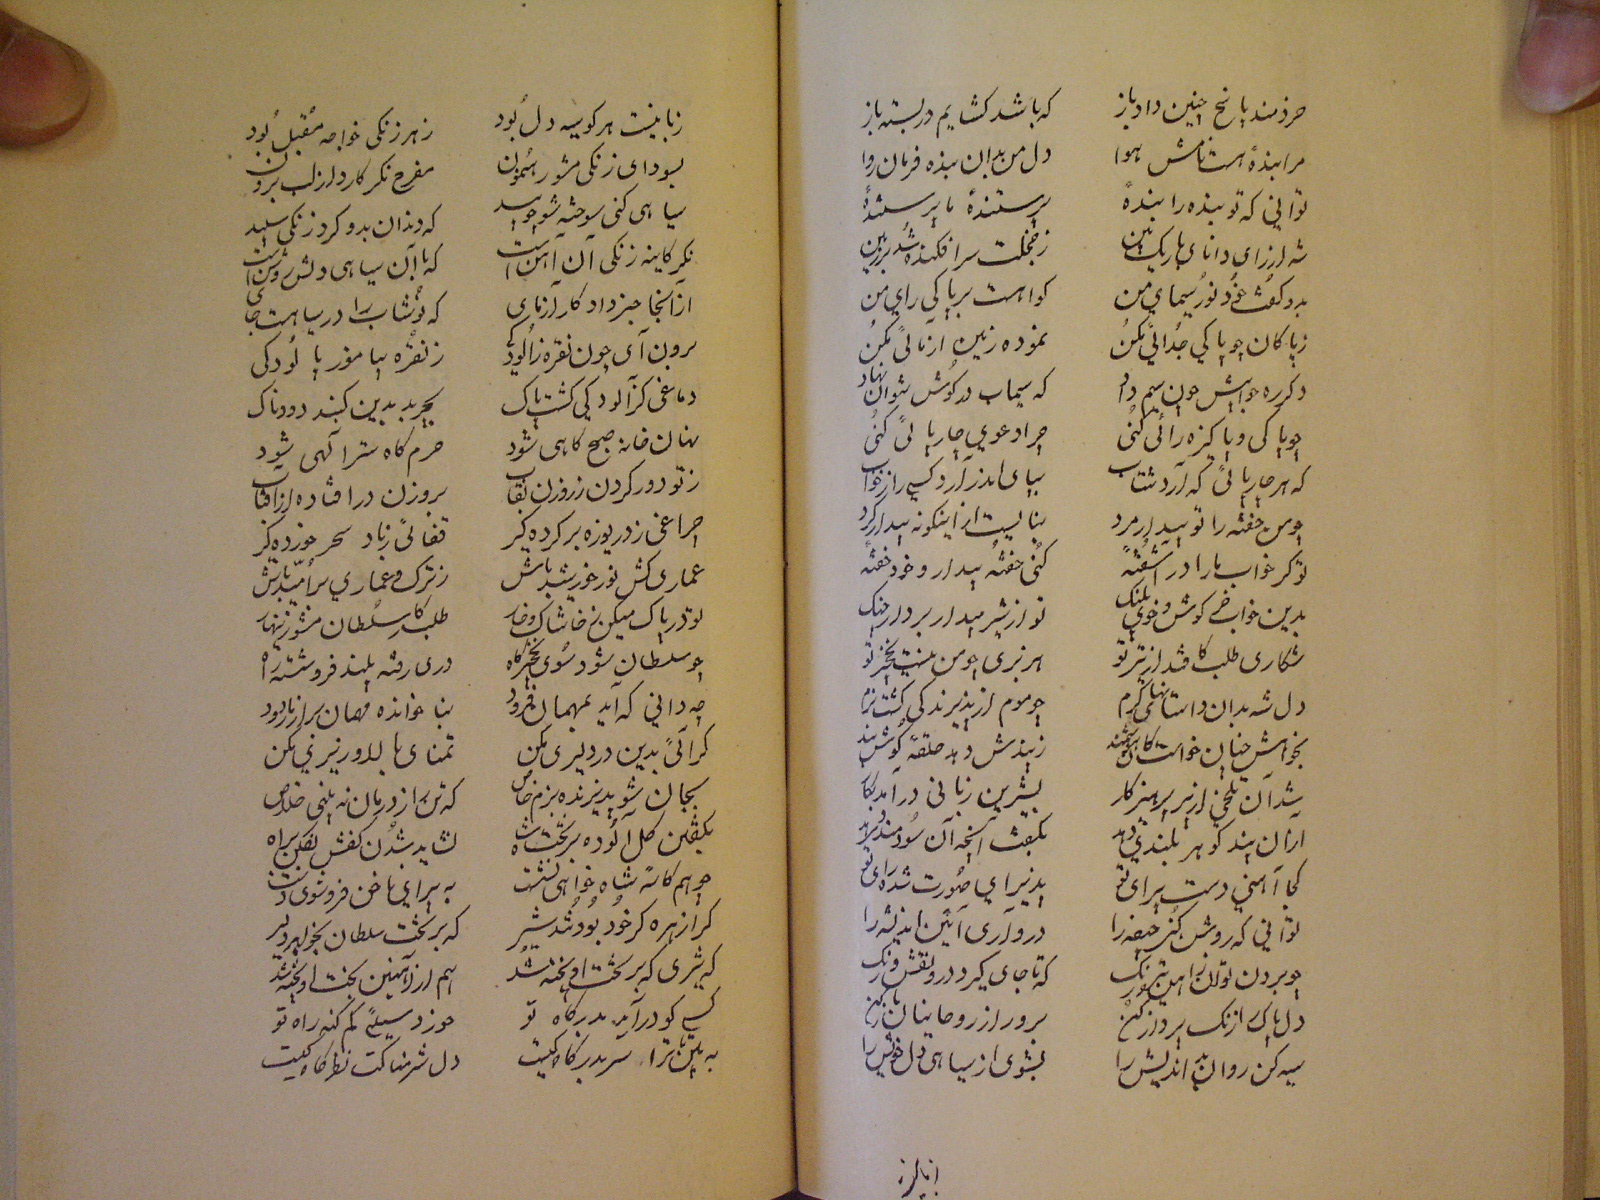 خردمند پاسخ چنین داد باز که باشد کشایم در بسته باز
مرا بندهٔ هست نامش هوا دل من بدان بنده فرمان روا
توانی که تو بنده را بندهٔ پرستندهٔ ما پرستندهٔ
شه از رای دانای باریک بین ز خجلت سرافکنده شد بر زمین
بدو گفت خود نور سیمای من گواهست بر پاکی رای من
ز پاکان چو پاکی جدائی مکن نموده زمین آزمائی مکن
دگر ره جوابش چون سیم داد که سیماب در گوش نتوان نهاد
چو پاکی و پاکیزه رائی کنی چرا دعوی چارپائی کنی
که هر چارپائی که آرد شتاب بپای اندر آرد کسی را ز خواب
چو من خفته را تو بیدار مرد نبایست از اینگونه بیدار کرد
تو کز خواب ما را در آشفتهٔ کنی خفته بیدار و خود خفتهٔ
بدین خواب خرگوش و خوی پلنگ تو از شیر بیدار بردار چنگ
شکاری طلب کافتد از تیر تو هزبری چو من نیست نخجیر تو
دل شه بدان داستانهای گرم چو موم از پذیرندگی گشت نرم
بخواهش چنان خواست کان هوشمند ز پندش دهد حلقه گوش بند
شد آن تلخی از پیر پرهیزکار بشیرین زبانی درآمد بکار
از آن پند کو هر بلندی دهد بگفت آنچه آن سودمندی دهد
کجا آهنی دست پیرای تو پذیرای صورت شده رای تو
توانی که روشن کنی خیفه را در او آری آئین اندیشه را
چو بردن توان ز آهن تیره رنگ که تا جای گیرد درو نقش و رنگ
دل پاک را زنگ پرداز کن برو راز روحانیان باز کن
سیه کن روان بد اندیش را بشوی از سیاهی دل خویش را
زبانیست هر کو سیه دل بود نه هر زنگی خواجه مقبل بود
بسودای زنگی مشو رهنمون مفرح نگر کارد از لب برون
سیاهی کنی سوخته شو چو بید که دندان بدو کرد زنگی سپید
نگر کاینه زنگی آن آهن است که با آن سیاهی دلش روشن است
از آنجا خبر داد کارآزمای که نوشاب را در سیاهست جای
برون آی چون نقره ز آلودگی ز نقره بیاموز پالودگی
دماغی کز آلودگی گشت پاک بچربد بدین گنبد دودناک
نهان خانه صبح گاهی شود حرم گاه ستر آلهی شود
ز تو دور کردن ز روزن نقاب بروزن در افتادن از آفتاب
چراغی ز دریوزه بر کرده گیر قفائی ز باد سحر خورده گیر
عماری کش نور خورشید باش ز ترک عماری پر امید باش
تو در پاک میکن ز خاشاک و خار طلب کار سلطان مشو زینهار
چو سلطان شود سوی نخجیرگاه دری رفته بیند فروشته راه
چه دانی که آید بمهمان فرود بناخوانده مهمان بر از ما درود
گر آئی بدین در دلیری مکن تمنای بالا و زیری مکن
بجان شو پذیرنده بزم خاص که تن را ز دربان نه بینی خلاص
بکفشین گل آلوده بر تخت شاه نشاید شدن کفش بفکن براه
چو هم کاسهٔ شاه خواهی نشست به پیرای ناخن فروشوی دست
گر از بهره گر خود بود تند شیر که بر تخت سلطان بخواهد دلیر
که شیری که بر تخت او بخته شد هم از آهنین تخت او بخته شد
کسی کو درآید بدرگاه تو خورد سیلئی گم کند راه تو
به بین تا ترا سر بدرگاه کیست دل شرمناکت نظرگاه کیست